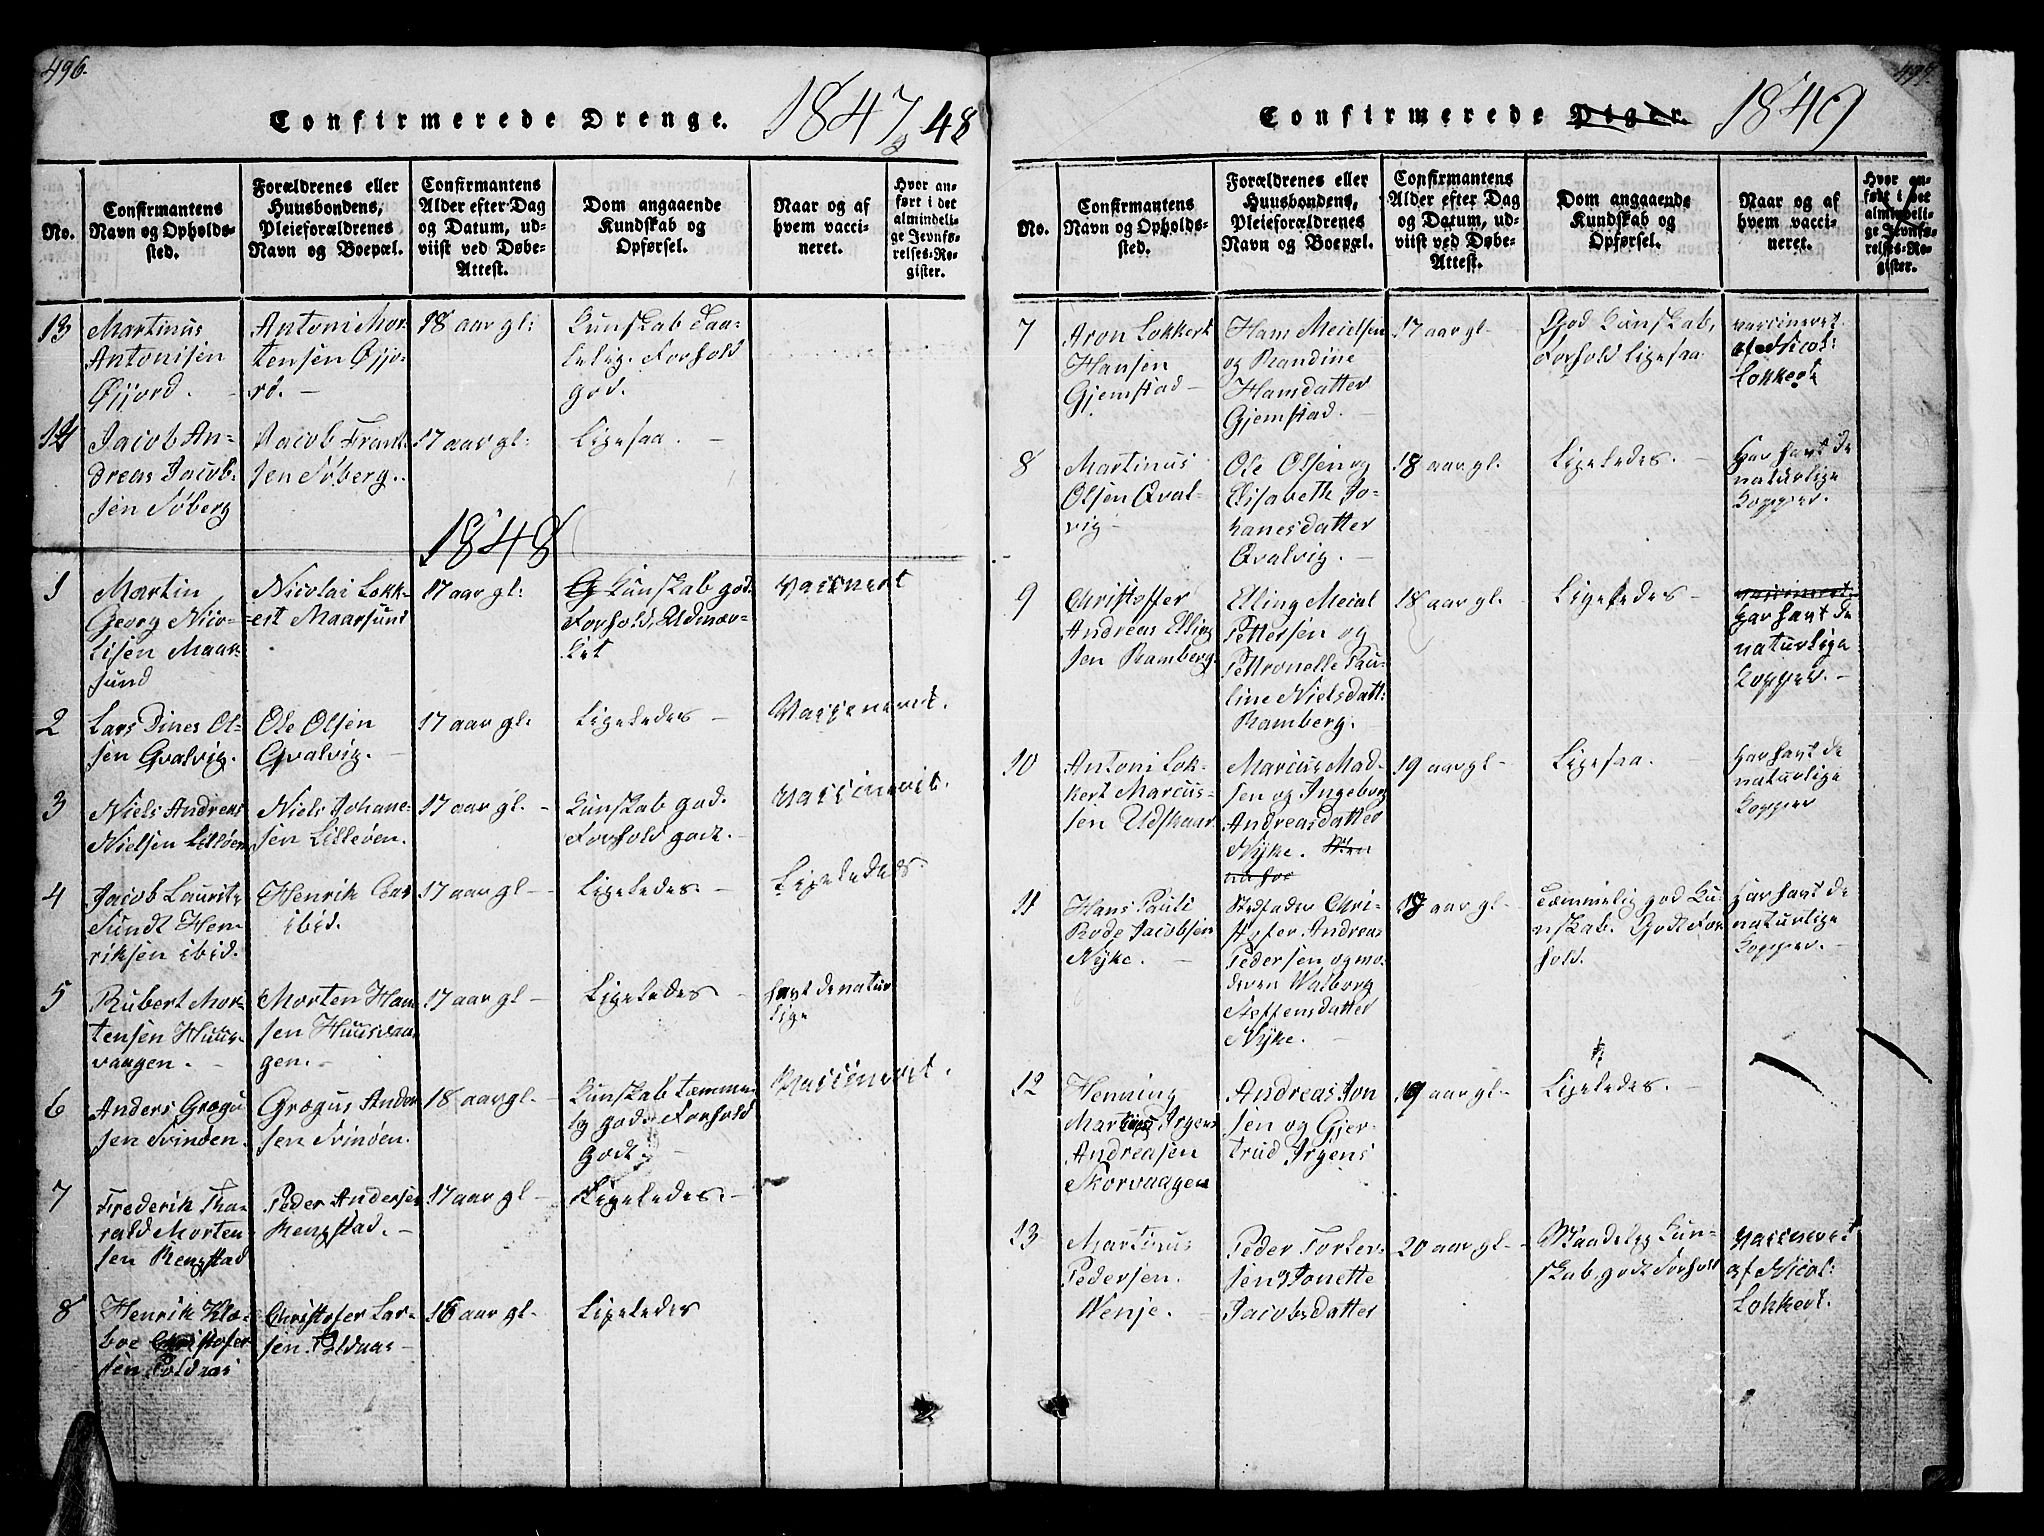 496.
Confirmerede Drenge. 1847, 48
No.
Confirmantens
Navn og Opholds-
sted.
Forældrenes eller
Huusbondens,
Pleieforældrenes
Navn og Boepæl.
Confirmantens
Alder efter Dag
og Datum, ud-
viist ved Døbe-
Attest.
Dom angaaende
Kundskab og
Opførsel.
Naar og af
hvem vacci-
neret.
Hvor an-
ført i det
almindeli-
ge Jevnfø-
relses-Re-
gister.
13
Martinus
Antonisen
Øjjord.
Antoni Mor-
tensen Øjjo-
rd.
18 aar gl:
Kunskab Taa-
lelig. Forhold
god.
14
Jacob An-
dreas Jacob-
sen Søberg
Jacob Frant
sen Søberg.
17 aar gl:
Ligesaa.
1848
1
Martin
Georg Nico-
lisen Maar-
sund
Nicolai Lokk-
ert Maarsund
17 aar gl:
Kunskab god.
Forhold, Udmær-
ket
Vaccinert
2
Lars Dines Ol-
sen Qvalvig.
Ole Olsen
Qvalvig.
17 aar gl:
Ligeledes
Vaccineret.
3
Niels Andreas
Nielsen Lilløen
Niels Johane-
sen Lilleøen.
17 aar gl.
Kunskab god.
Forhold godt.
Vaccineret.
4
Jacob Laurits
Sundt Hen-
riksen ibid.
Henrik
ibid.
17 aar gl
Ligeledes.
Ligeledes.
5
Rubert Mor-
tensen Huus-
vaagen.
Morten Han
sen Huusvaa
gen.
17 aar gl
Ligeledes
havt de natur
lige
6
Anders Grægu
sen Svinøen.
Grægus Ander
sen Svinøen.
18 aar gl
Kunskab temme
lig god. Forhold
godt.
Vaccineret.
7
Frederik Tha-
rald Morten
sen Rengstad
Peder Andersen
Rengstad.
17 aar gl
Ligeledes.
8
Henrik Klæ-
boe Christofer
sen Poldaas
Christofer Lar-
sen Poldaas
16 aar gl.
Ligeledes
497.
Confirmerede Piger. 1849
No.
Confirmantens
Navn og Opholds-
sted.
Forældrenes eller
Huusbondens,
Pleieforældrenes
Navn og Boepæl.
Confirmantens
Alder efter Dag
og Datum, ud-
viist ved Døbe-
Attest.
Dom angaaende
Kundskab og
Opførsel.
Naar og af
hvem vacci-
neret.
Hvor an-
ført i det
almindeli-
ge Jevnfø-
relses-Re-
gister.
7
Aron Lokkert
Hansen
Gjemstad
Hans Meielsen
og Randine
Hansdatter
Gjemstad.
17 aar gl
God Kunskab,
Forhold Ligesaa
vaccineret.
af Nicol:
Lokkert
8
Martinus
Olsen Qval-
vig
Ole Olsen og
Elisabeth Jo-
hanesdatter
Qvalvig.
18 aar gl.
Ligeledes.
har havt de
naturlige
Kopper.
9
Christoffer
Andreas Elling
sen Ramberg.
Elling Meial
Pettersen og
Pettronelle Pau-
line Nielsdatt:
Ramberg.
18 aar gl
Ligeledes
vaccineret.
har havt de
naturlige
Kopper.
10
Antoni Lok-
kert Marcus-
sen Udskaar
Marcus Mad-
sen og Ingeborg
Andreasdatter
Nyke.
19 aar gl
Ligesaa.
har havt de
naturlige
Kopper
11
Hans Pauli
Rode Jacobsen
Nyke.
Stedfader Chri-
stofer Andreas
Pedersen og mo-
deren Walborg
Steffensdatter
Nyke.
18 aar gl
Temmelig god Ku-
nskab. Godt For
hold.
har havt de
naturlige
Kopper.
12
Henning
Martinus Irgens
Andreasen
Skorvaagen
Andreas Jon
sen og Gjer-
trud Irgens
19 aar gl
Ligeledes.
13
Martinus
Pedersen.
Wenje.
Peder Torker-
sen og Jonette
Jacobsdatter
20 aar gl
Maadelig Kun-
skab, godt Forhold
vaccineret
af Nicol:
Lokkert.